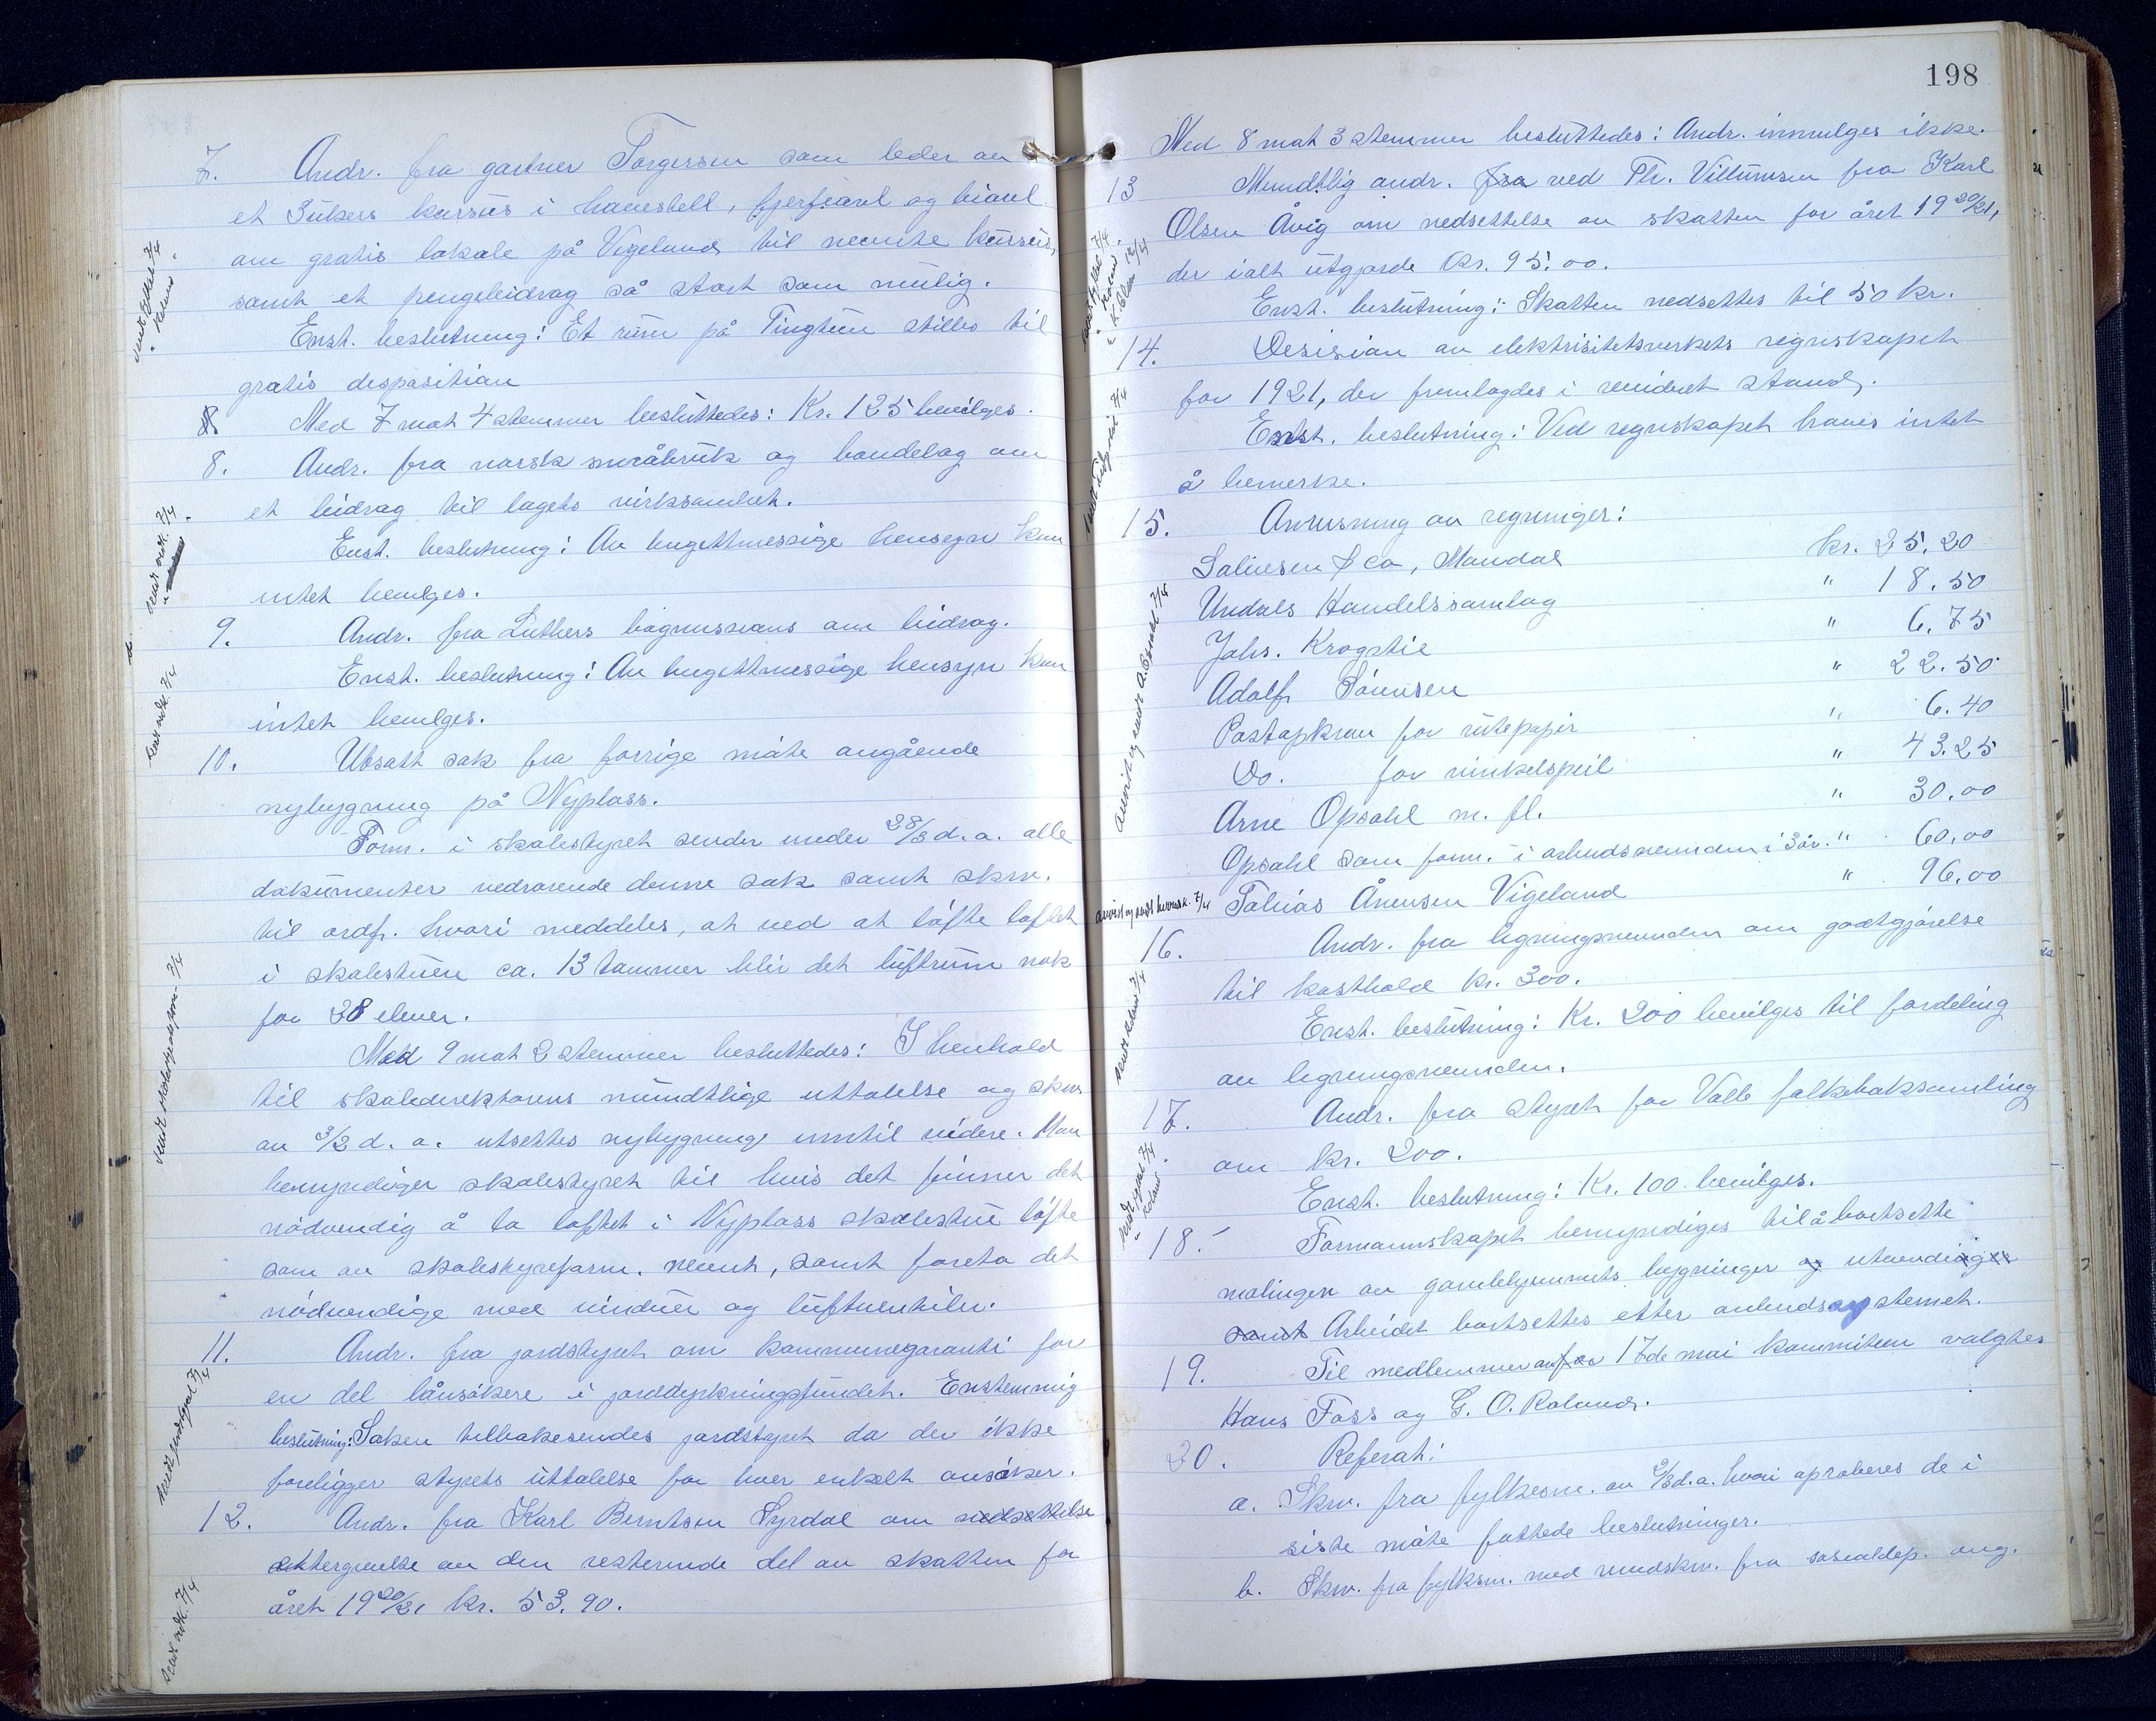 7. Andr. fra gartner Torgersen som leder av
et 3ukers kursus i havestell, fjerfeavl og biavl
om gratis lokale på Vigeland til nevnte kursus,
samt et pengebidrag så stort som mulig.
Enst. beslutning: Et rum på Tingtun stilles til
gratis desposition
Med 7 mot 4 stemmer besluttedes: Kr. 125 bevilges.
8. Andr. fra norsk småbruk og bondelag om
et bidrag til lagets virksomhet.
Enst. beslutning: Av bugettmessige hensyn kan
intet bevilges.
9. Andr. fra Luthers bogmissions om bidrag.
Enst. beslutning: Av bugettmessige hensyn kan
intet bevilges.
10. Utsatt sak fra forrige møte angående
nybygning på Nyplass.
Form. i skolestyret sender under 28/3 d.a. alle
dokumenter vedrørende denne sak samt skriv.
til ordf. hvori meddeles, at ved at løfte loftet
i skolestuen ca. 13 tommer blir det luftrum nok
for 28 elever.
Med 9 mot 2 stemmer besluttedes: I henhold
til skoledirektørens mundtlige uttalelse og skriv
av 3/3 d.a. utsettes nybygning inntil videre. Man
bemyndiger skolestyret til hvis det finner det
nødvendig å ta loftet i Nyplass skolestue løfte
som av skolestyreform. nevnt, samt foreta det
nødvendige med vinduer og luftventiler.
11. Andr. fra jordstyret om kommunegaranti for
en del lånsøkere i jorddyrkningsfundet. Enstemmig
beslutning: Saken tilbakesendes jordstyret da der ikke
foreligger styrets uttalelse for hver enkelt ansøker.
12. Andr. fra Karl Berntsen Syrdal om nedsettelse
ettergivelse av den resterende del av skatten for
året 1920/21 kr. 53.90.
198
Med 8 mot 3 stemmer besluttedes: Andr. innvilges ikke.
13 Mundtlig andr. fra ved Th. Villumsen fra Karl
Olsen Åvig om nedsettelse av skatten for året 1920/21,
der ialt utgjorde Kr. 95.00.
Enst. beslutning: Skatten nedsettes til 50 kr.
14. Desision av elektrisitetsverkets regnskapet
for 1921, der fremlagdes i revideret stand.
Enst. beslutning: Ved regnskapet haves intet
å bemerke.
15. Anvisning av regninger:
Salvesen & Co, Mandal kr. 25.20
Undals Handelssamlag " 18.50
Johs. Krogstie " 6.75
Adolf Sørensen " 22.50
Postopkrav for rutepapir " 6.40
Do. for vinkelspeil " 43.25
Arne Opsahl m. fl. " 30.00
Opsahl som form. i arbeidsnemnden i 3 år. " 60.00
Tobias Ånensen Vigeland " 96.00
16. Andr. fra ligningsnemnden om godtgjørelse
til kosthold kr. 300.
Enst. beslutning: Kr. 200 bevilges til fordeling
av ligningsnemnden.
17. Andr. fra styret for Valle folkeboksamling
om kr. 200.
Enst. beslutning: Kr. 100 bevilges.
18. Formannskapet bemyndiges til å bortsette
malingen av gamlehjemmets bygninger og utvendigen
samt Arbeidet bortsettes etter anbudssystemet.
19. Til medlemmer av for 17de mai komiteen valgtes
Hans Foss og G. O. Roland.
20. Referat:
a. Skriv. fra fylkesm. av 2/3 d.a. hvori aproberes de i
siste møte fattede beslutninger.
b. Skriv. fra fylkesm. med rundskriv. fra sosialdep. ang.